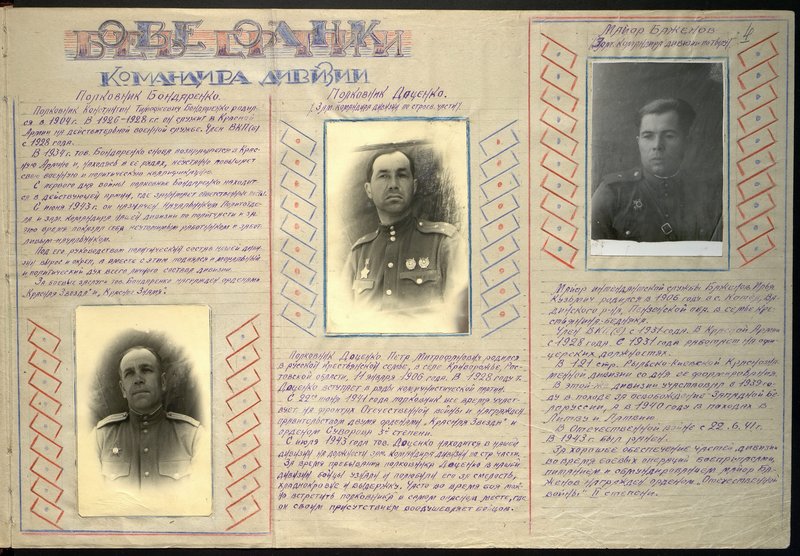 БОЕВЫЕ СОРАТНИКИ
КОМАНДИРА ДИВИЗИИ
Полковник Бондаренко.
Полковник Константин Тимофеевич Бондаренко родил-
ся в 1904 г. В 1926-1928 г.г. он служит в Красной
Армии на действительной военной службе. Член ВКП(б)
с 1928 года.
В 1934 г. тов. Бондаренко снова возвращается в Крас-
ную Армию и, находясь в её рядах, неустанно повышает
свою военную и политическую квалификацию.
С первого дня войны полковник Бондаренко находит-
ся в действующей армии, где занимает ответственные посты.
С июня 1943 г. он назначен Начальником Политотде-
ла и зам. командира нашей дивизии по политчасти и за
это время показал себя неутомимым работником и забот-
ливым начальником.
Под его руководством политический состав нашей диви-
зии вырос и окреп, а вместе с этим поднялся и моральный
и политический дух всего личного состава дивизии.
За боевые заслуги тов. Бондаренко награжден орденами
"Красная Звезда" и "Красное Знамя".
Полковник Доценко.
[Зам. командира дивизии по строев. части]
Полковник Доценко Петр Митрофанович родился
в русской крестьянской семье, в селе Криворожье, Рос-
товской области, 14 января 1906 года. В 1928 году т.
Доценко вступает в ряды коммунистической партии.
С 22го июня 1941 года полковник всё время участ-
вует на фронтах Отечественной войны и награжден
правительством двумя орденами "Красная Звезда" и
орденом Суворова 3й степени.
С июля 1943 года тов. Доценко находится в нашей
дивизии на должности зам. командира дивизии по стр. части.
За время пребывания полковника Доценко в нашей
дивизии бойцы узнали и полюбили его за смелость,
хладнокровие и выдержку. Часто во время боя мож-
но встретить полковника в самом опасном месте, где
он своим присутствием воодушевляет бойцов.
4
Майор Баженов
[Зам. командира дивизии по тылу]
Майор интендантской службы Баженов Илья
Кузьмич родился в 1906 году в с. Котел, Ва-
динского р-на, Пензенской обл. в семье кре-
стьянина-бедняка.
Член ВКП(б) с 1931 года. В Красной Армии
с 1928 года. С 1931 года работает на офи-
церских должностях.
В 121 стр. Рыльско-Киевской Краснозна-
менной дивизии со дня её формирования.
В этой-же дивизии участвовал в 1939 го-
ду в походе за освобождение Западной Бе-
лоруссии, а в 1940 году в походах в
Литву и Латвию.
В Отечественной войне с 22.6.41 г.
В 1943 г. был ранен.
За хорошее обеспечение частей дивизии
во время боевых операций боеприпасами,
питанием и обмундированием майор Ба-
женов награжден орденом "Отечественной
войны" II степени.